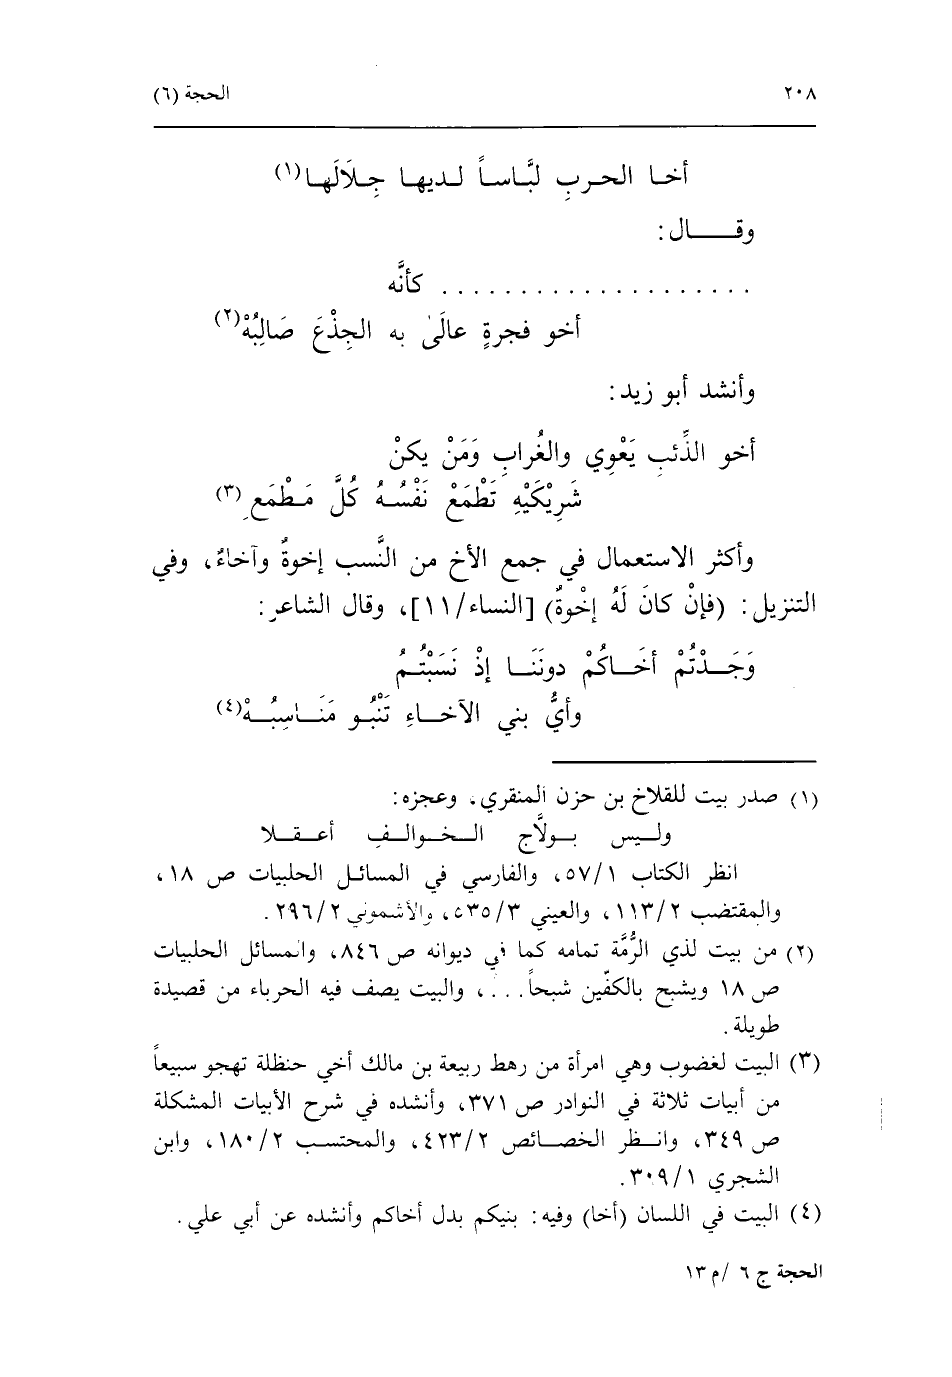 ٢٠٨ الحجة (٦)
أخا الحربِ لبَّاساً لديها جِلَالَها(١)
وقال:
. . . . . . . . . . . . . . . . . . . كأنَّه
أخو فجرةٍ عالَىٰ به الجِذْعَ صَالِبُهْ(٢)
وأنشد أبو زيد:
أخو الذِّئبِ يَعْوِي والغُرابِ وَمَنْ يكنْ
شَرِيْكَيْهِ تَطْمَعْ نَفْسُهُ كُلَّ مَطْمَعِ(٣)
وأكثر الاستعمال في جمع الأخ من النَّسب إخوةٌ وآخاءٌ، وفي
التنزيل: (فإنْ كانَ لَهُ إخْوةٌ) [النساء/١١]، وقال الشاعر:
وَجَدْتُمْ أخَاكُمْ دونَنَا إذْ نَسَبْتُمُ
وأيُّ بني الآخاءِ تَنْبُو مَنَاسِبُهْ(٤)
(١) صدر بيت للقلاخ بن حزن المنقري، وعجزه:
وليس بولَّاج الخوالف أعقلا
انظر الكتاب ٥٧/١، والفارسي في المسائل الحلبيات ص ١٨،
والمقتضب ١١٣/٢، والعيني ٥٣٥/٣، والأشموني ٢٩٦/٢.
(٢) من بيت لذي الرُّمَّة تمامه كما في ديوانه ص ٨٤٦، والمسائل الحلبيات
ص ١٨ ويشبح بالكفّين شبحاً...، والبيت يصف فيه الحرباء من قصيدة
طويلة.
(٣) البيت لغضوب وهي امرأة من رهط ربيعة بن مالك أخي حنظلة تهجو سبيعاً
من أبيات ثلاثة في النوادر ص ٣٧١، وأنشده في شرح الأبيات المشكلة
ص ٣٤٩، وانظر الخصائص ٤٢٣/٢، والمحتسب ١٨٠/٢، وابن
الشجري ٣٠٩/١.
(٤) البيت في اللسان (أخا) وفيه: بنيكم بدل أخاكم وأنشده عن أبي علي.
الحجة ج ٦ /م ١٣